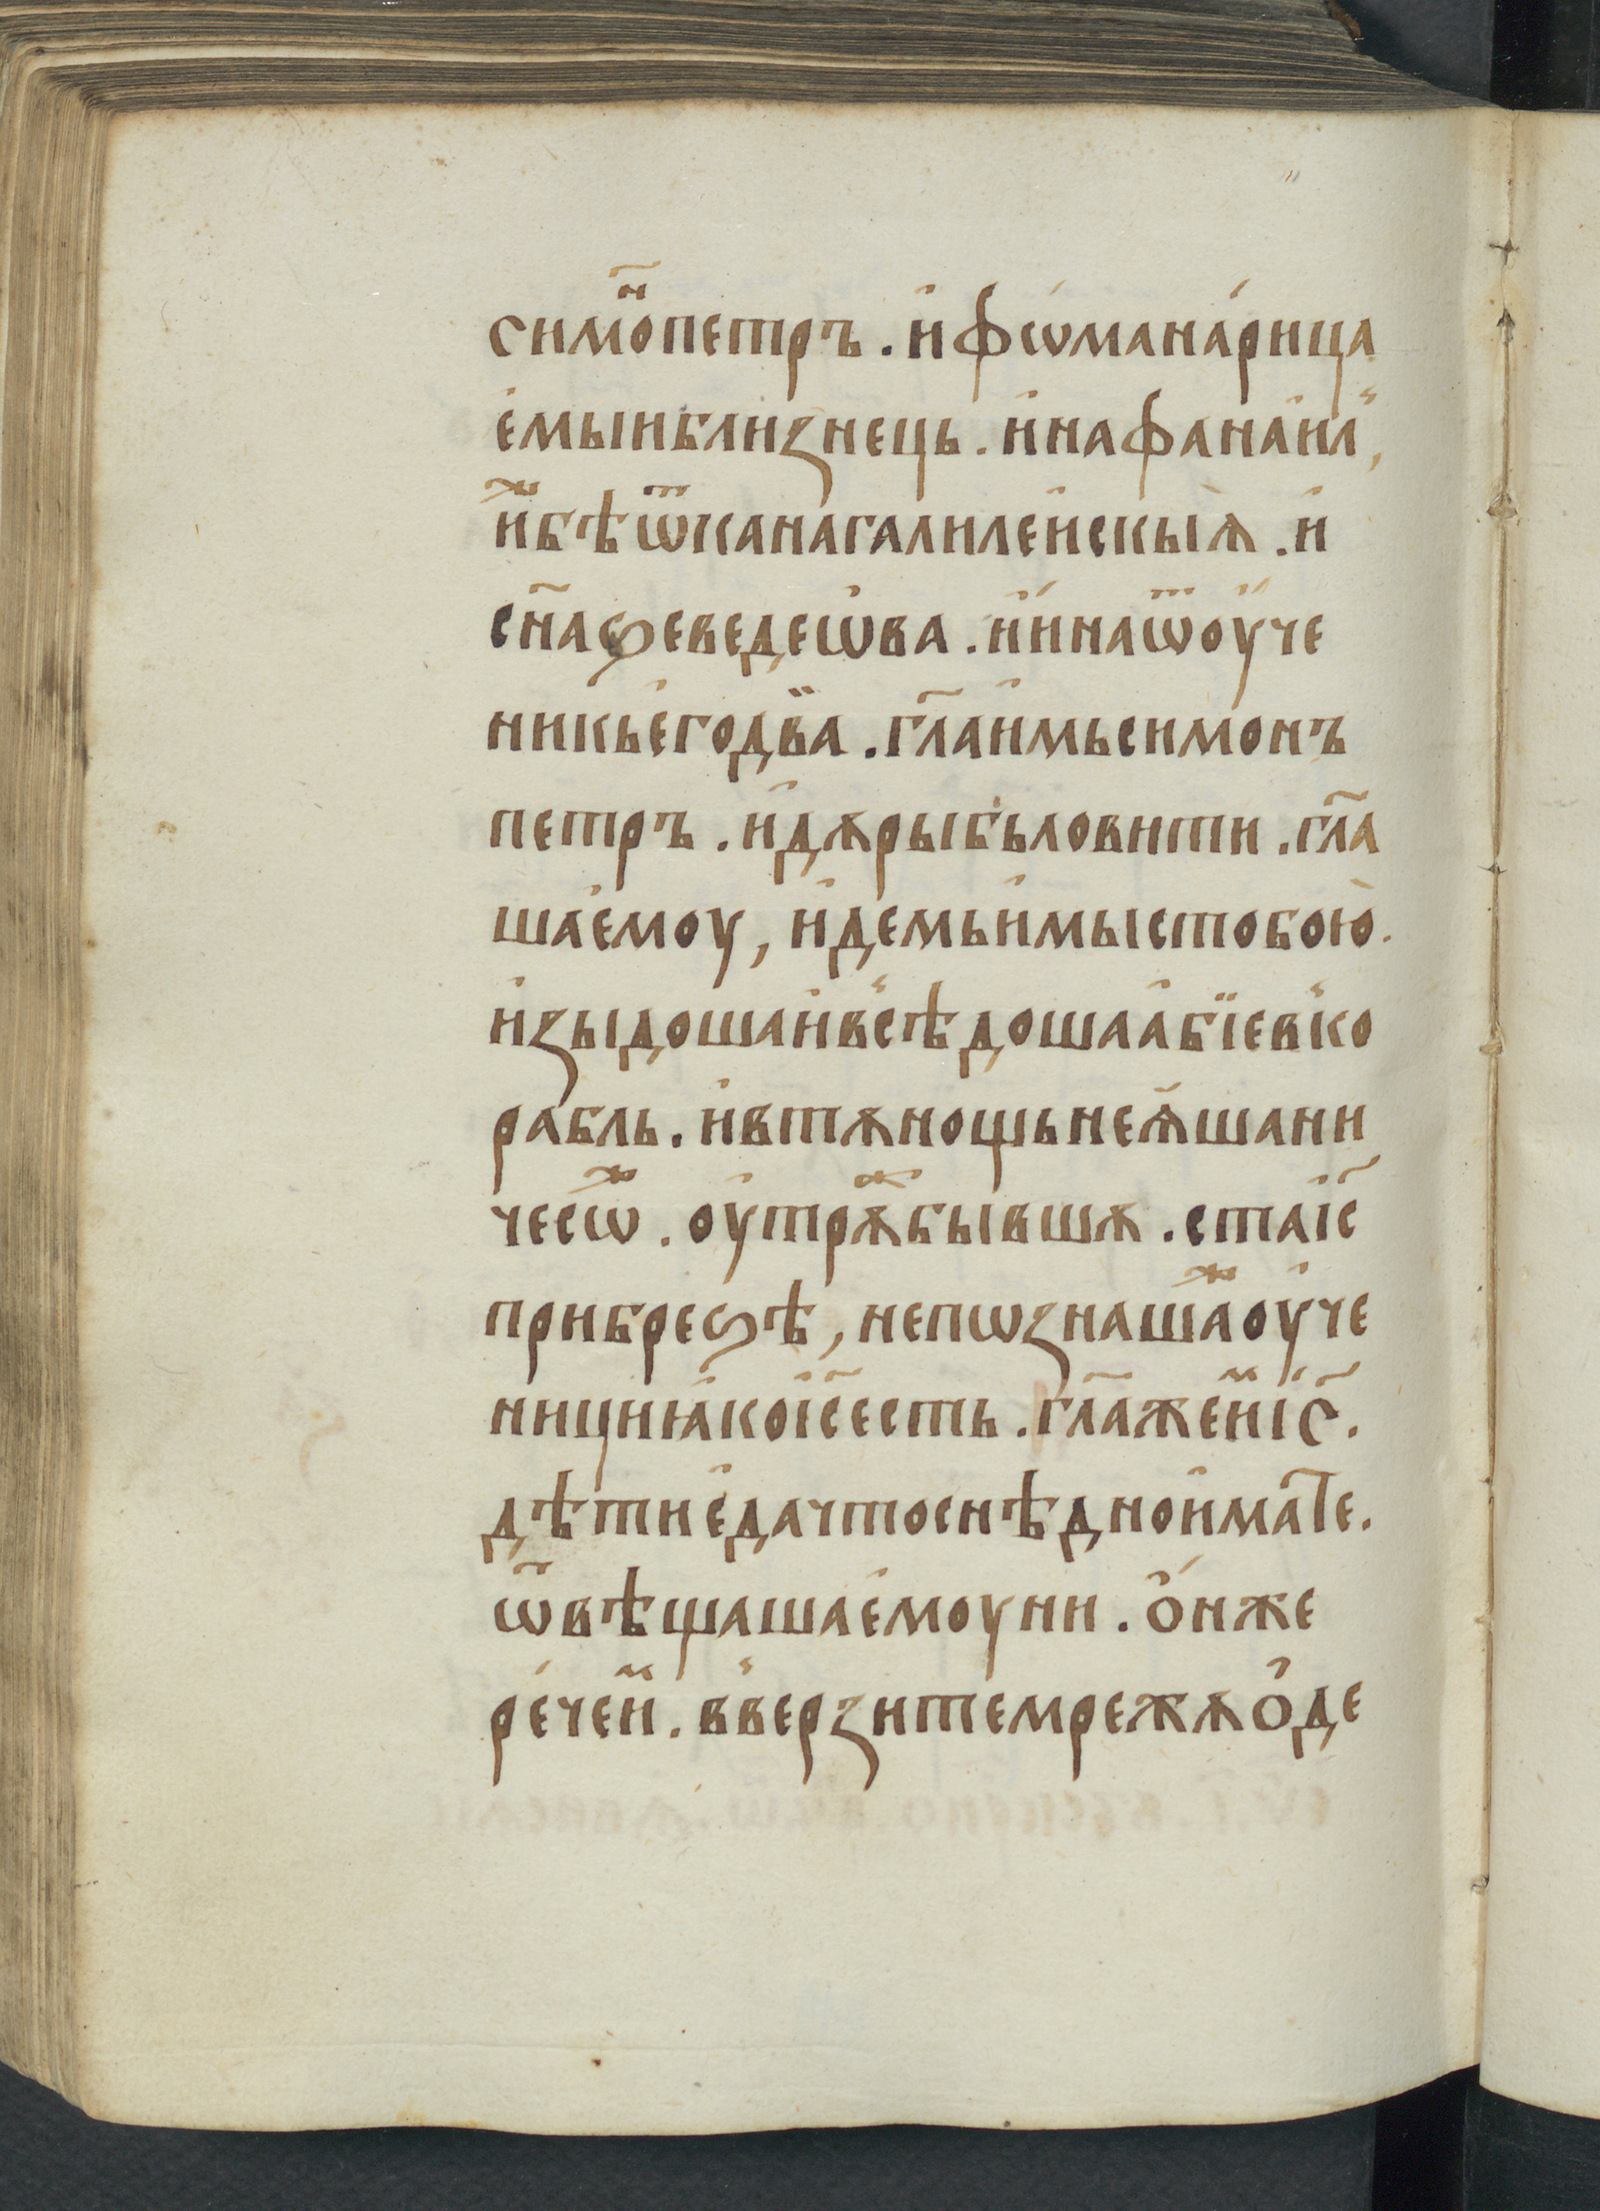 симо̑ⷩ҇петръ . и҆ фѡ́мана́рица
е҆мыиблиꙁнець . и҆нафанаи҆л̾,
и҆ⷤбѣѿканагалиле́искыѧ̀ . и҆
сн҃аѕеведеѡ҆ва . и҆и҆́наѿоу҆́че
никье҆годв̾а . гл҃аи҆мьсимонъ
петръ . и҆дѫрыбьловити . гл҃а
шае҆моу, и҆демьи҆мыстобою̀.
и҆ꙁыдошаи҆в̾сѣдошаа҆бїев̾ко
рабль . и҆втѫнощьнеꙗ҆шани
чесѡⷤ . оу҆трѫⷤбывшѫ . стаі҆с҃
прибреѕѣ, непѡꙁнашаⷤоу҆че
нициꙗ҆коі҆с҃есть . гл҃ажеи҆ⷨі҆с҃.
дѣтие҆дачтоснѣднои҆мате.
ѿвѣщашае҆моуни . о҆́нже
ре́чеи҆ⷨ . в̾верꙁитемрежѫѻ҆де